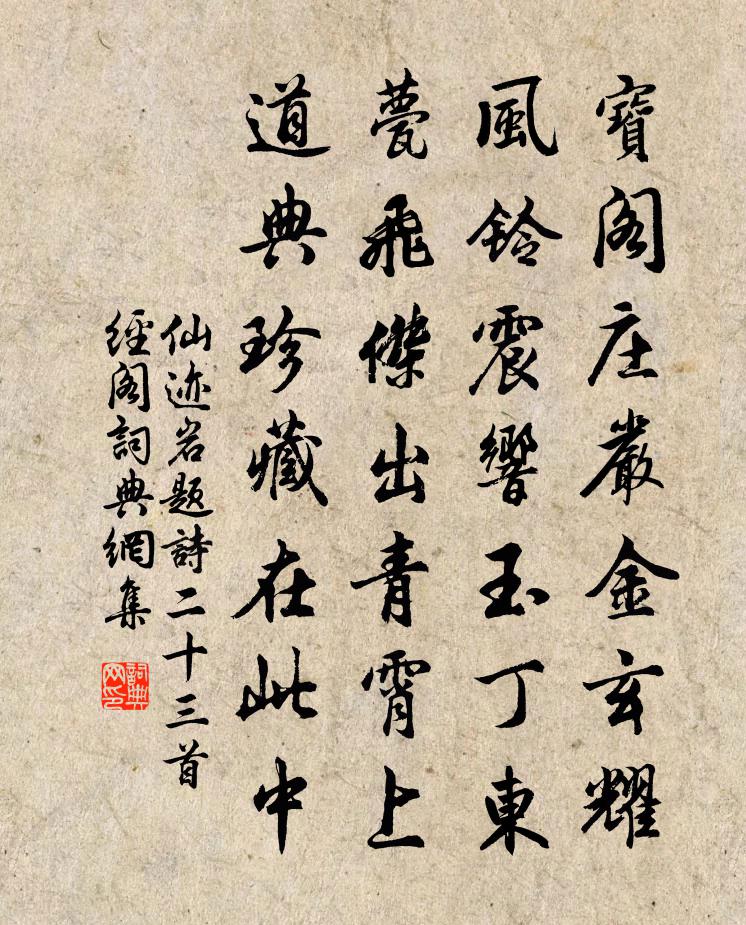 寶閣庄嚴金玄耀
風鈴震響玉丁東
甍飛傑出青霄上
道典珍藏在此中
仙迹岩题詩二十三首
經阁詞典網集
詞典网印